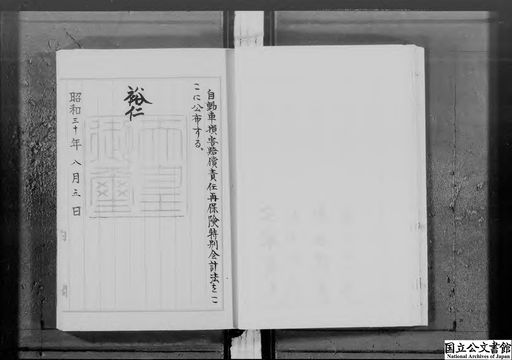 自動車損害賠償責任再保険特別会計法をこ
こに公布する。
裕仁
天皇
御璽
昭和三十年八月三日
国立公文書館
National Archives of Japan